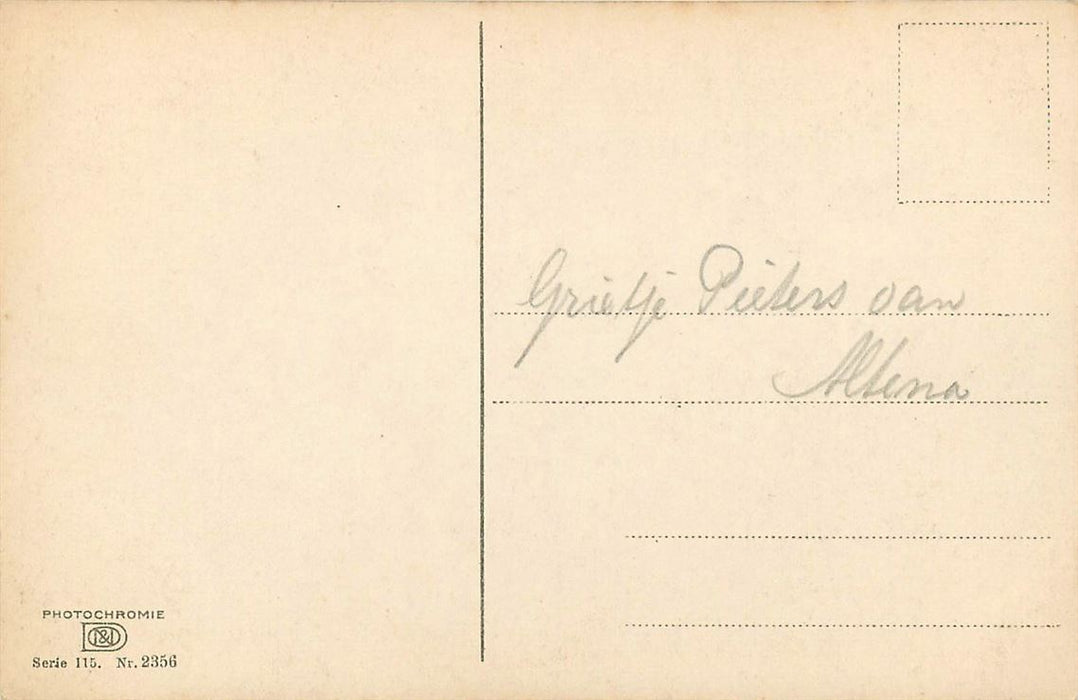 Grietje Pieters van
Altena
PHOTOCHROMIE
Serie 115. Nr. 2356